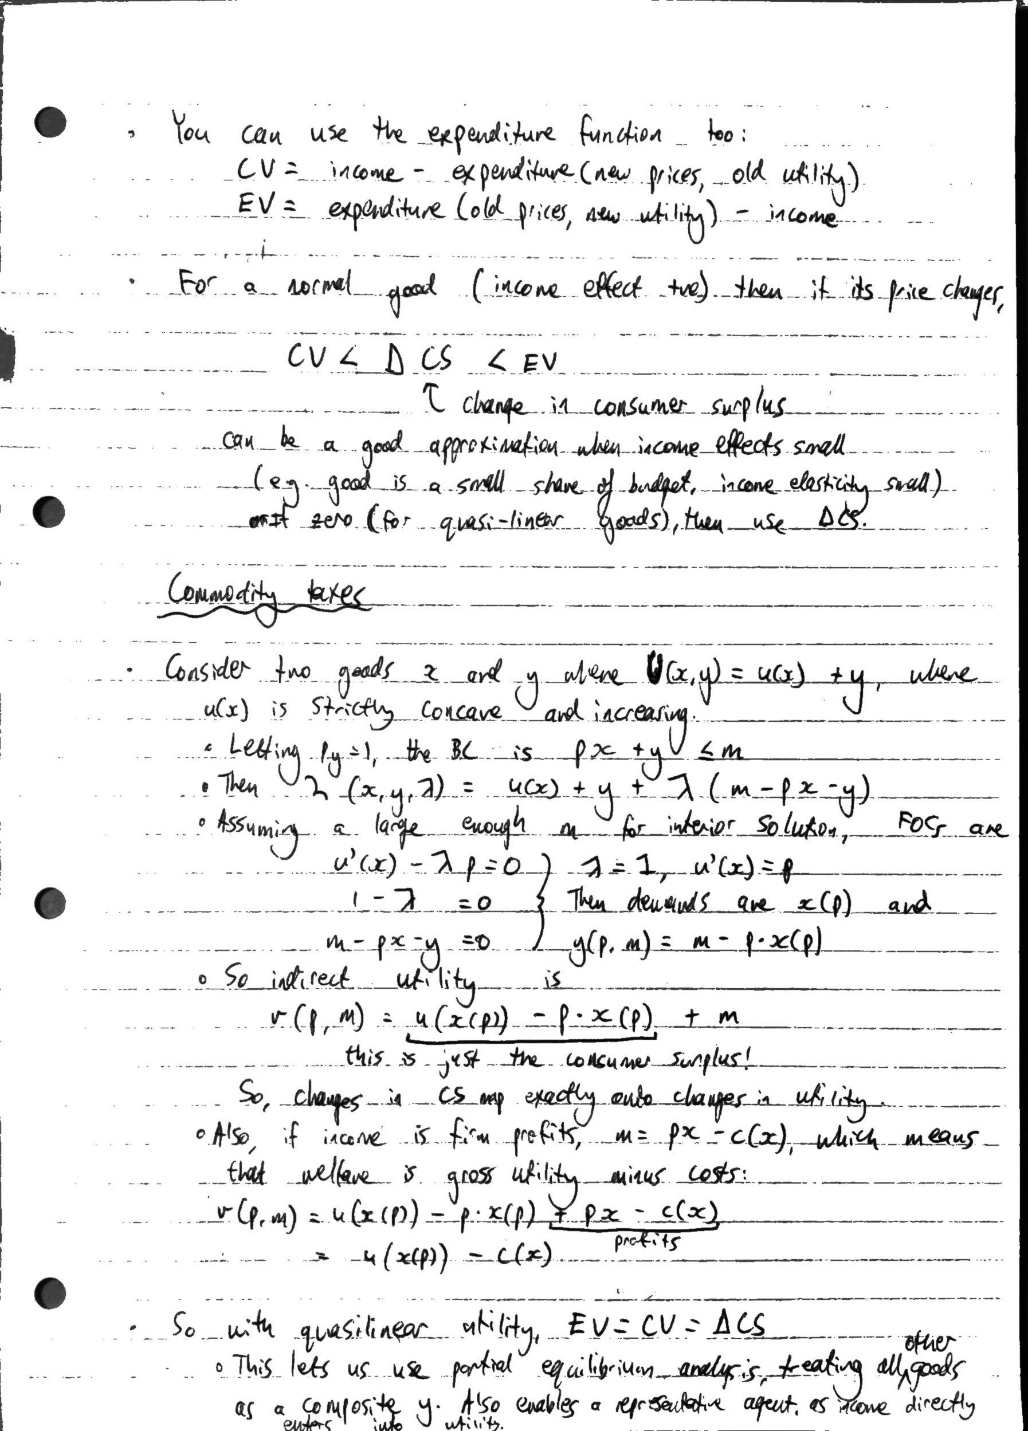 · You can use the expenditure function too:
CV = income - expenditure (new prices, old utility)
EV = expenditure (old prices, new utility) - income
· For a normal good (income effect +ve) then if its price changes,
CV < Δ CS < EV
↑ change in consumer surplus
can be a good approximation when income effects small
(e.g. good is a small share of budget, income elasticity small)
If zero (for quasi-linear goods), then use ΔCS.
Commodity taxes
· Consider two goods x and y where U(x,y) = u(x) + y, where
u(x) is strictly concave and increasing.
∘ Letting Py=1, the BC is px + y ≤ m
∘ Then L (x,y,λ) = u(x) + y + λ (m - px - y)
∘ Assuming a large enough m for interior solution, FOCs are
u'(x) - λp = 0 } λ = 1, u'(x) = p
1 - λ = 0 } Then demands are x(p) and
m - px - y = 0 } y(p, m) = m - p·x(p)
∘ So indirect utility is
v(p, m) = u(x(p)) - p·x(p) + m
this is just the consumer surplus!
So, changes in CS map exactly onto changes in utility.
∘ Also, if income is firm profits, m = px - c(x), which means
that welfare is gross utility minus costs:
v(p,m) = u(x(p)) - p·x(p) + px - c(x)
profits
= u(x(p)) - c(x)
· So with quasilinear utility, EV = CV = ΔCS
∘ This lets us use partial equilibrium analysis, treating all other goods
as a composite y. Also enables a representative agent, as income directly
enters into utility.